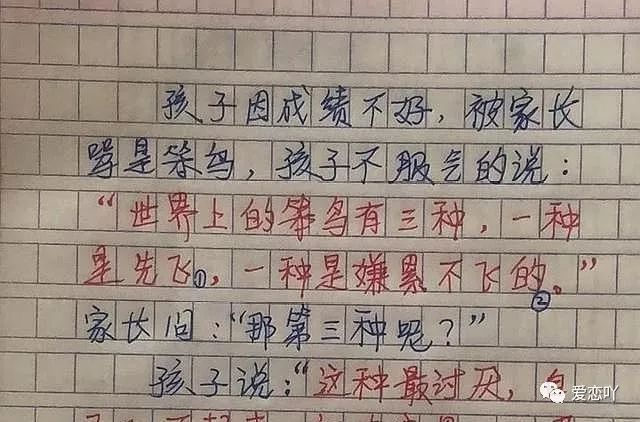 孩子因成绩不好，被家长
骂是笨鸟，孩子不服气的说：
“世界上的笨鸟有三种，一种
是先飞①，一种是嫌累不飞的②。”
家长问：“那第三种呢？”
孩子说：“这种最讨厌，自
爱恋吖